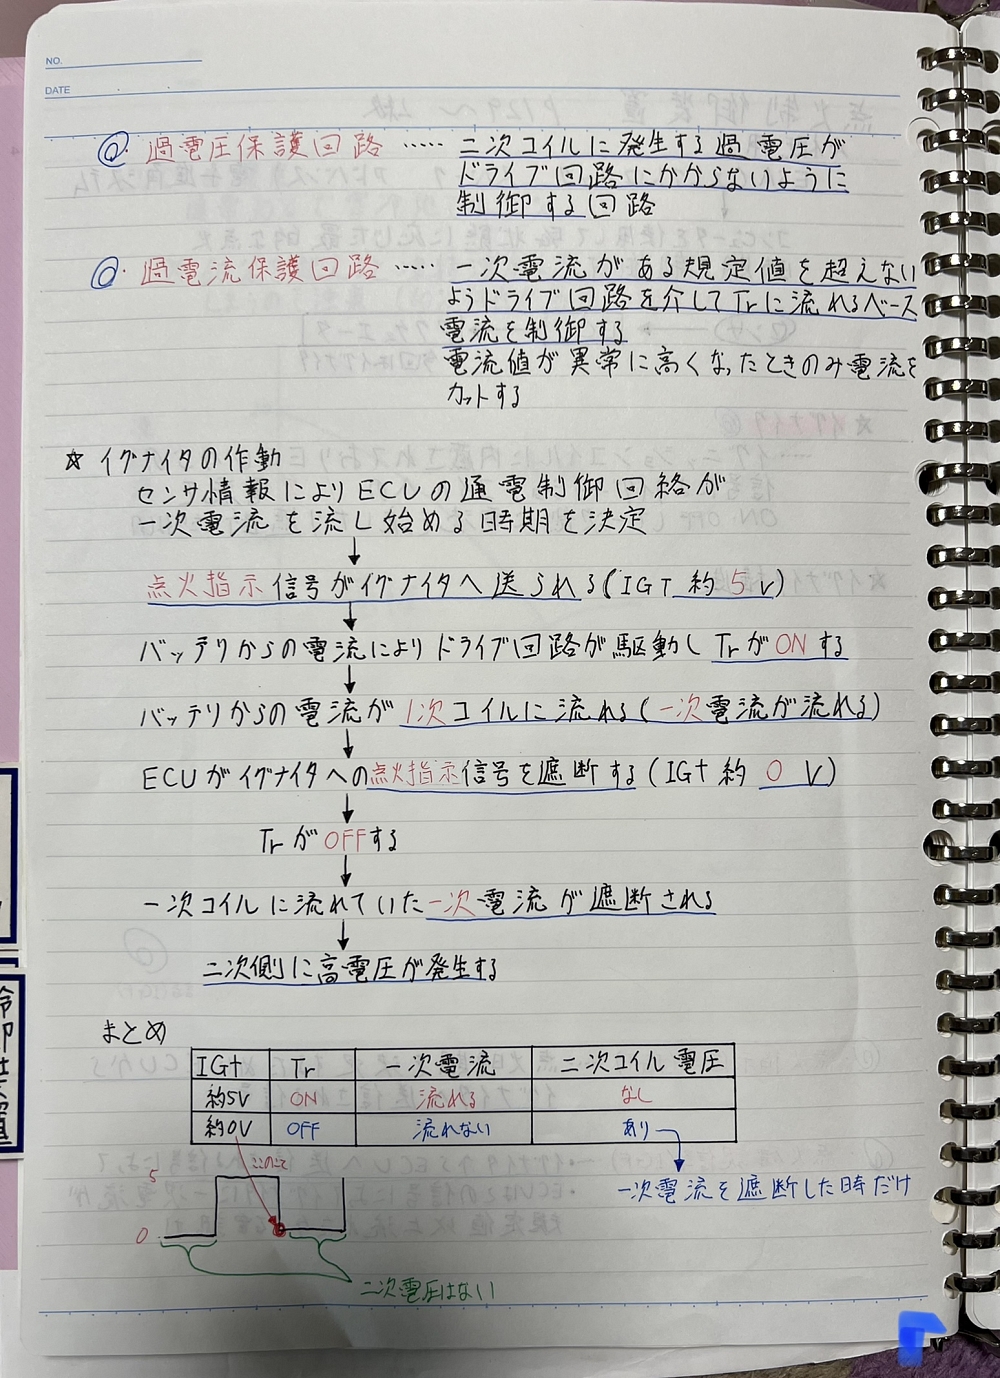 NO.
DATE
過電圧保護回路 ・・・・・ 二次コイルに発生する過電圧が
ドライブ回路にかからないように
制御する回路
過電流保護回路 ・・・・・ 一次電流がある規定値を超えない
ようドライブ回路を介してTrに流れるベース
電流を制御する
電流値が異常に高くなったときのみ電流を
カットする
☆ イグナイタの作動
センサ情報によりECUの通電制御回絡が
一次電流を流し始める時期を決定
↓
点火指示信号がイグナイタへ送られる(IGT 約5V)
↓
バッテリからの電流によりドライブ回路が駆動しTrがONする
↓
バッテリからの電流が1次コイルに流れる(一次電流が流れる)
↓
ECUがイグナイタへの点火指示信号を遮断する(IGt 約 0 V)
↓
TrがOFFする
↓
一次コイルに流れていた一次電流が遮断される
↓
二次側に高電圧が発生する
まとめ
IGt Tr 一次電流 二次コイル電圧
約5V ON 流れる なし
約0V OFF 流れない あり
5 ここのこと
一次電流を遮断した時だけ
0
二次電圧はない
冷却装置